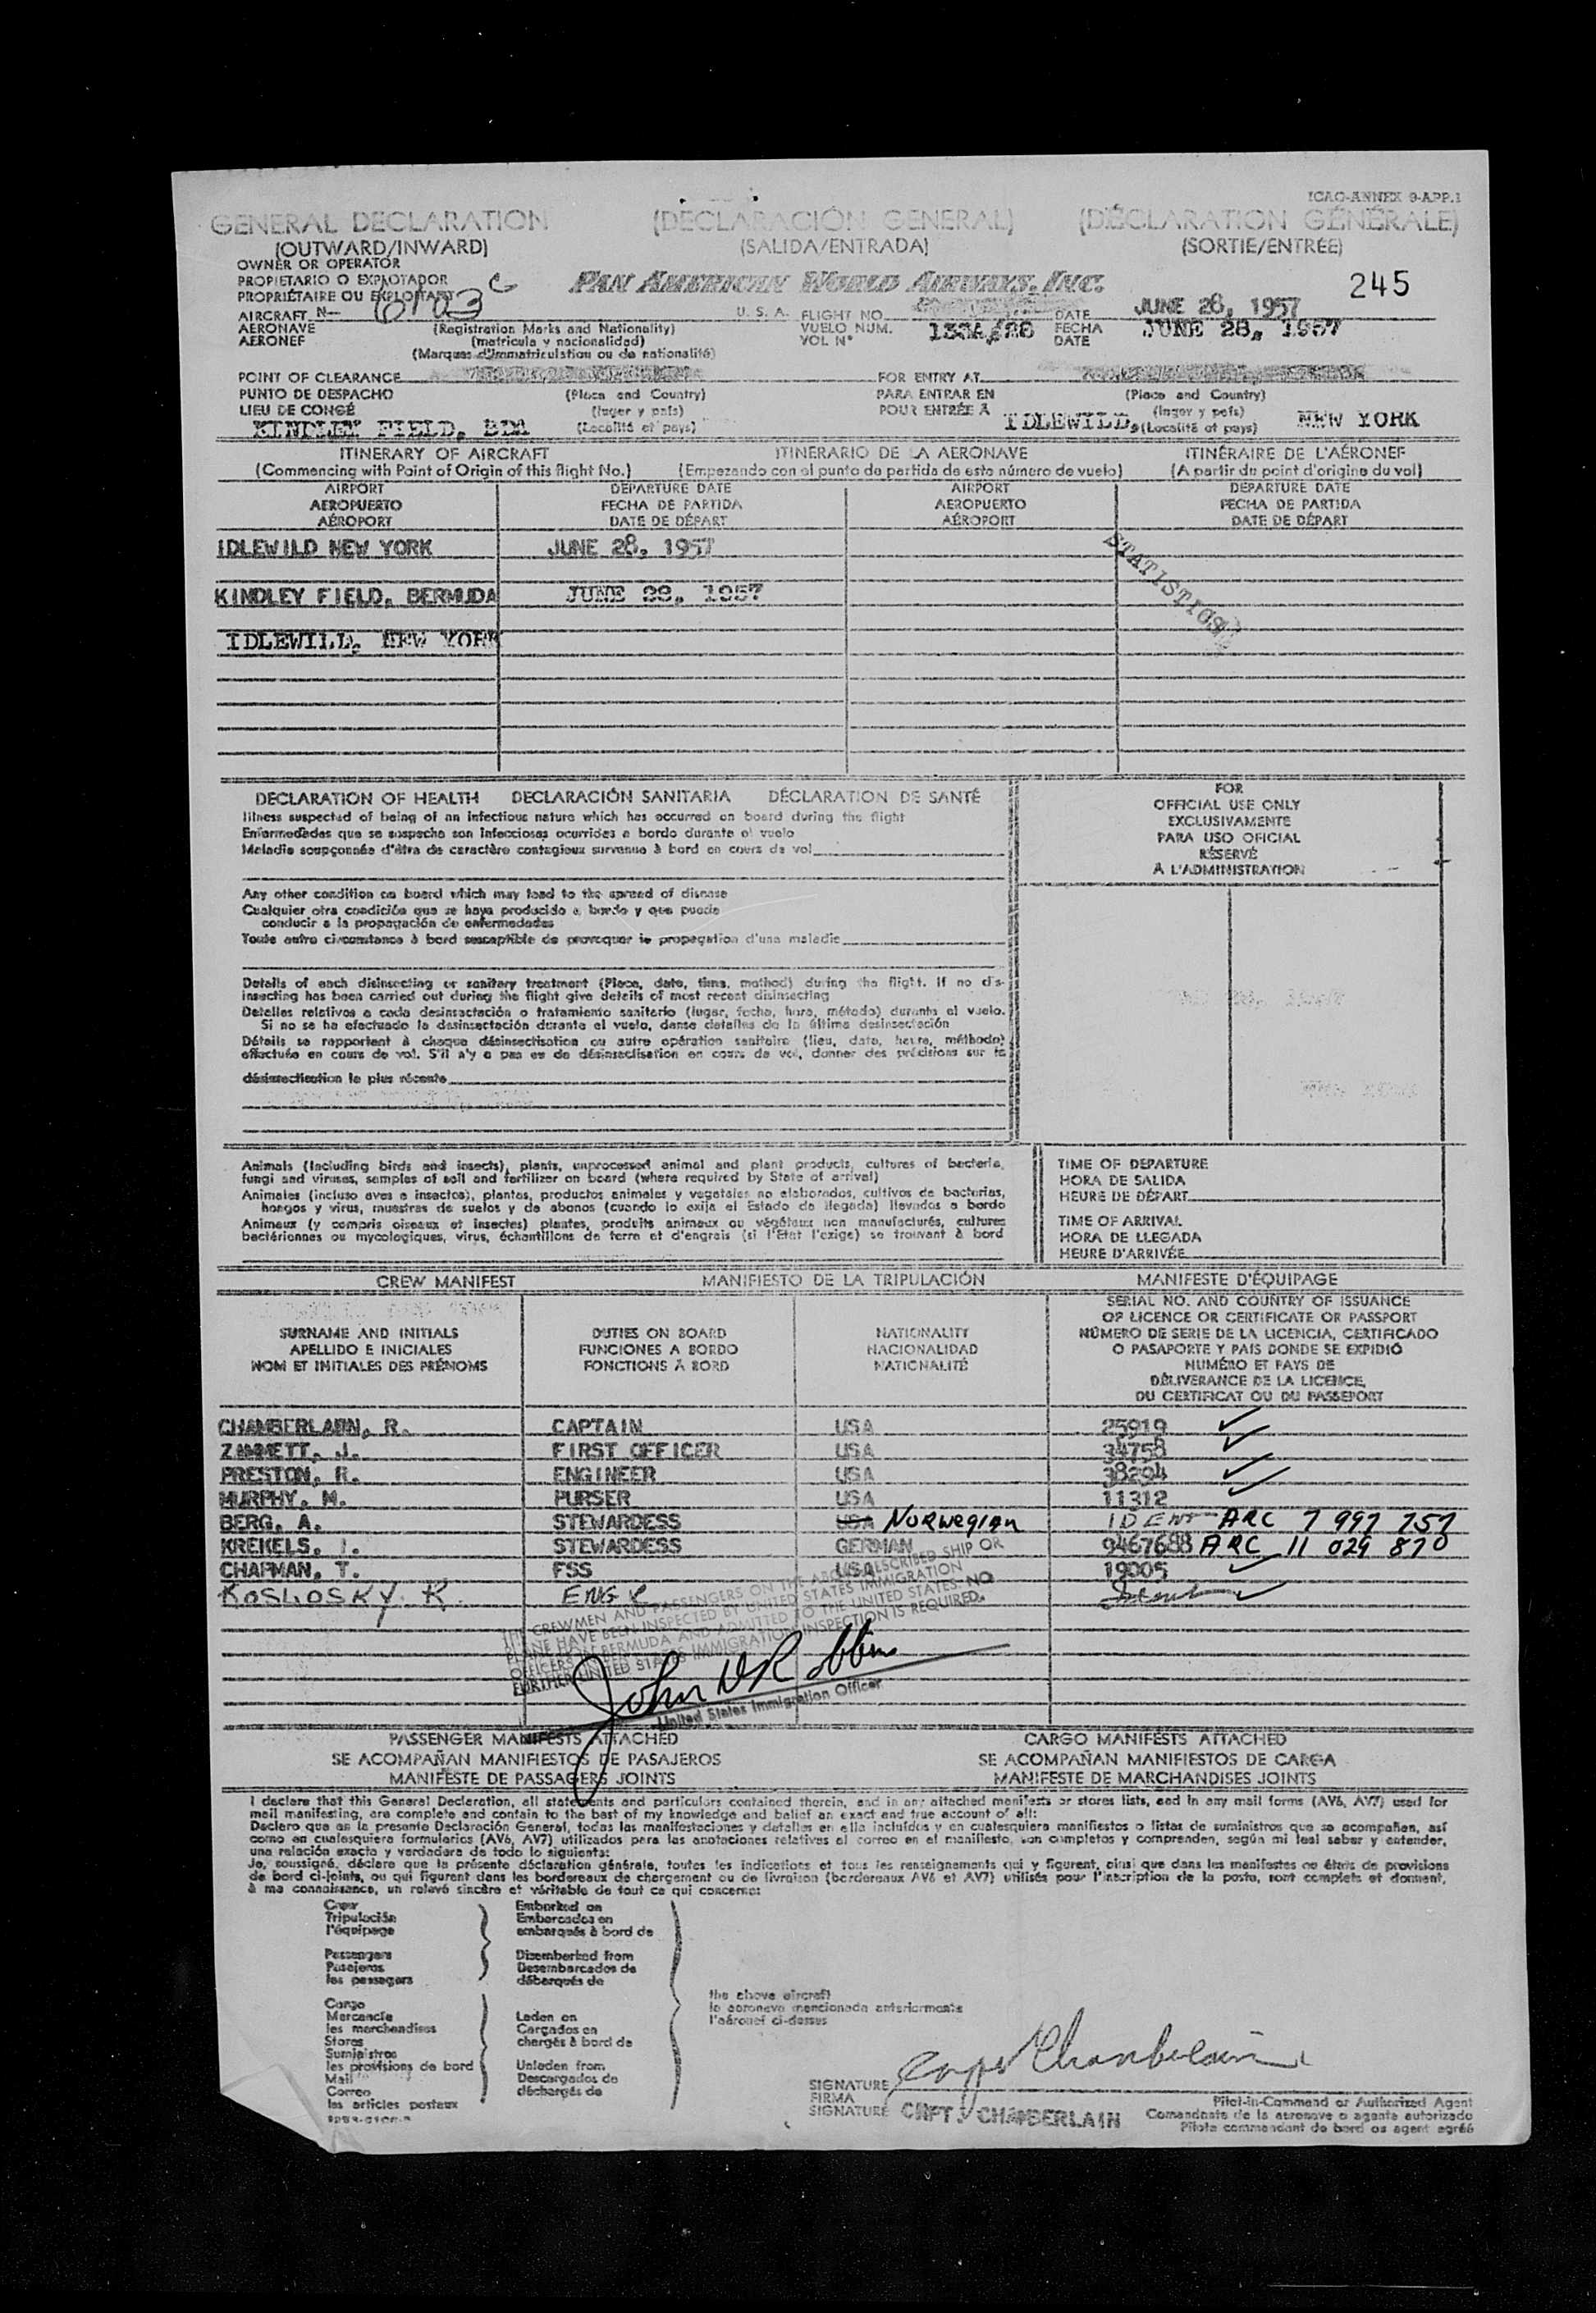 ICAO-ANNEX 9-APP.1
GENERAL DECLARATION (DECLARACIÓN GENERAL) (DÉCLARATION GÉNÉRALE)
(OUTWARD/INWARD) (SALIDA/ENTRADA) (SORTIE/ENTRÉE)
OWNER OR OPERATOR
PROPIETARIO O EXPLOTADOR
PROPRIÉTAIRE OU EXPLOITANT
PAN AMERICAN WORLD AIRWAYS, INC.
245
AIRCRAFT N- U. S. A. FLIGHT NO. DATE JUNE 28, 1957
AERONAVE (Registration Marks and Nationality) VUELO NUM. FECHA JUNE 28, 1957
AERONEF (matricula y nacionalidad) VOL N° DATE
(Marques d'Immatriculation ou de nationalité)
POINT OF CLEARANCE FOR ENTRY AT
PUNTO DE DESPACHO (Place and Country) PARA ENTRAR EN (Place and Country)
LIEU DE CONGÉ (lugar y país) POUR ENTRÉE À (lugar y país)
KINDLEY FIELD, BDA (Localité et pays) IDLEWILD, (Localité et pays) NEW YORK
ITINERARY OF AIRCRAFT ITINERARIO DE LA AERONAVE ITINÉRAIRE DE L'AÉRONEF
(Commencing with Point of Origin of this flight No.) (Empezando con el punto de partida de este número de vuelo) (A partir du point d'origine du vol)
AIRPORT DEPARTURE DATE AIRPORT DEPARTURE DATE
AEROPUERTO FECHA DE PARTIDA AEROPUERTO FECHA DE PARTIDA
AÉROPORT DATE DE DÉPART AÉROPORT DATE DE DÉPART
IDLEWILD NEW YORK JUNE 28, 1957
STATISTICS
KINDLEY FIELD, BERMUDA JUNE 28, 1957
IDLEWILD, NEW YORK
DECLARATION OF HEALTH DECLARACIÓN SANITARIA DÉCLARATION DE SANTÉ
Illness suspected of being of an infectious nature which has occurred on board during the flight
Enfermedades que se sospecha son infecciosas ocurridas a bordo durante el vuelo
Maladie soupçonnée d'être de caractère contagieux survenue à bord en cours de vol
FOR
OFFICIAL USE ONLY
EXCLUSIVAMENTE
PARA USO OFICIAL
RÉSERVÉ
À L'ADMINISTRATION
Any other condition on board which may lead to the spread of disease
Cualquier otra condición que se haya producido a bordo y que puede
conducir a la propagación de enfermedades
Toute autre circonstance à bord susceptible de provoquer la propagation d'une maladie
Details of each disinsecting or sanitary treatment (Place, date, time, method) during the flight. If no dis-
insecting has been carried out during the flight give details of most recent disinsecting
Detalles relativos a cada desinsectación o tratamiento sanitario (lugar, fecha, hora, método) durante el vuelo.
Si no se ha efectuado la desinsectación durante el vuelo, danse detalles de la última desinsectación
Détails se rapportant à chaque désinsectisation ou autre opération sanitaire (lieu, date, heure, méthode)
effectuée en cours de vol. S'il n'y a pas eu de désinsectisation en cours de vol, donner des précisions sur la
désinsectisation la plus récente
Animals (Including birds and insects), plants, unprocessed animal and plant products, cultures of bacteria,
fungi and viruses, samples of soil and fertilizer on board (where required by State of arrival)
Animales (incluso aves e insectos), plantas, productos animales y vegetales no elaborados, cultivos de bacterias,
hongos y virus, muestras de suelos y de abonos (cuando lo exija el Estado de llegada) llevados a bordo
Animaux (y compris oiseaux et insectes) plantes, produits animaux ou végétaux non manufacturés, cultures
bactériennes ou mycologiques, virus, échantillons de terre et d'engrais (si l'Etat l'exige) se trouvant à bord
TIME OF DEPARTURE
HORA DE SALIDA
HEURE DE DÉPART
TIME OF ARRIVAL
HORA DE LLEGADA
HEURE D'ARRIVÉE
CREW MANIFEST MANIFIESTO DE LA TRIPULACIÓN MANIFESTE D'ÉQUIPAGE
SURNAME AND INITIALS DUTIES ON BOARD NATIONALITY
APELLIDO E INICIALES FUNCIONES A BORDO NACIONALIDAD
NOM ET INITIALES DES PRÉNOMS FONCTIONS À BORD NATIONALITÉ
SERIAL NO. AND COUNTRY OF ISSUANCE
OF LICENCE OR CERTIFICATE OR PASSPORT
NÚMERO DE SERIE DE LA LICENCIA, CERTIFICADO
O PASAPORTE Y PAIS DONDE SE EXPIDIÓ
NUMÉRO ET PAYS DE
DÉLIVERANCE DE LA LICENCE,
DU CERTIFICAT OU DU PASSEPORT
CHAMBERLAIN, R. CAPTAIN USA 25919
ZAMMETT, J. FIRST OFFICER USA 34758
PRESTON, R. ENGINEER USA 38294
MURPHY, M. PURSER USA 11312
BERG, A. STEWARDESS USA Norwegian IDENT ARC 7 997 757
KREKELS, I. STEWARDESS GERMAN 9467688 ARC 11 029 870
CHAPMAN, T. FSS USA 19005
KOSLOSKY K. ENG
THE CREWMEN AND PASSENGERS ON THE ABOVE DESCRIBED SHIP OR
PLANE HAVE BEEN INSPECTED BY UNITED STATES IMMIGRATION
OFFICERS AT BERMUDA AND ADMITTED TO THE UNITED STATES. NO
FURTHER UNITED STATES IMMIGRATION INSPECTION IS REQUIRED.
John D Robbins
United States Immigration Officer
PASSENGER MANIFESTS ATTACHED CARGO MANIFESTS ATTACHED
SE ACOMPAÑAN MANIFIESTOS DE PASAJEROS SE ACOMPAÑAN MANIFIESTOS DE CARGA
MANIFESTE DE PASSAGERS JOINTS MANIFESTE DE MARCHANDISES JOINTS
I declare that this General Declaration, all statements and particulars contained therein, and in any attached manifests or stores lists, and in any mail forms (AV6, AV7) used for
mail manifesting, are complete and contain to the best of my knowledge and belief an exact and true account of all:
Declaro que en la presente Declaración General, todas las manifestaciones y detalles en ella incluídos y en cualesquiera manifiestos o listas de suministros que se acompañen, así
como en cualesquiera formularios (AV6, AV7) utilizados para las anotaciones relativas al correo en el manifiesto, son completos y comprenden, según mi leal saber y entender,
una relación exacta y verdadera de todo lo siguiente:
Je, soussigné, déclare que la présente déclaration générale, toutes les indications et tous les renseignements qui y figurent, ainsi que dans les manifestes ou états de provisions
de bord ci-joints, ou qui figurent dans les bordereaux de chargement ou de livraison (bordereaux AV6 et AV7) utilisés pour l'inscription de la poste, sont complets et donnent,
à ma connaissance, un relevé sincère et véritable de tout ce qui concerne:
Crew Embarked on
Tripulación Embarcados en
l'équipage embarqués à bord de
Passengers Disembarked from
Pasajeros Desembarcados de
les passagers débarqués de
Cargo
Mercancía Laden on
les marchandises Cargados en
Stores chargés à bord de
Suministros
les provisions de bord Unladen from
Mail Descargados de
Correo déchargés de
les articles postaux
the above aircraft
la aeronave mencionada anteriormente
l'aéronef ci-dessus
Capt Chamberlain
SIGNATURE
FIRMA
SIGNATURE CAPT CHAMBERLAIN
Pilot-in-Command or Authorized Agent
Comandante de la aeronave o agente autorizado
Pilote commandant de bord ou agent agréé